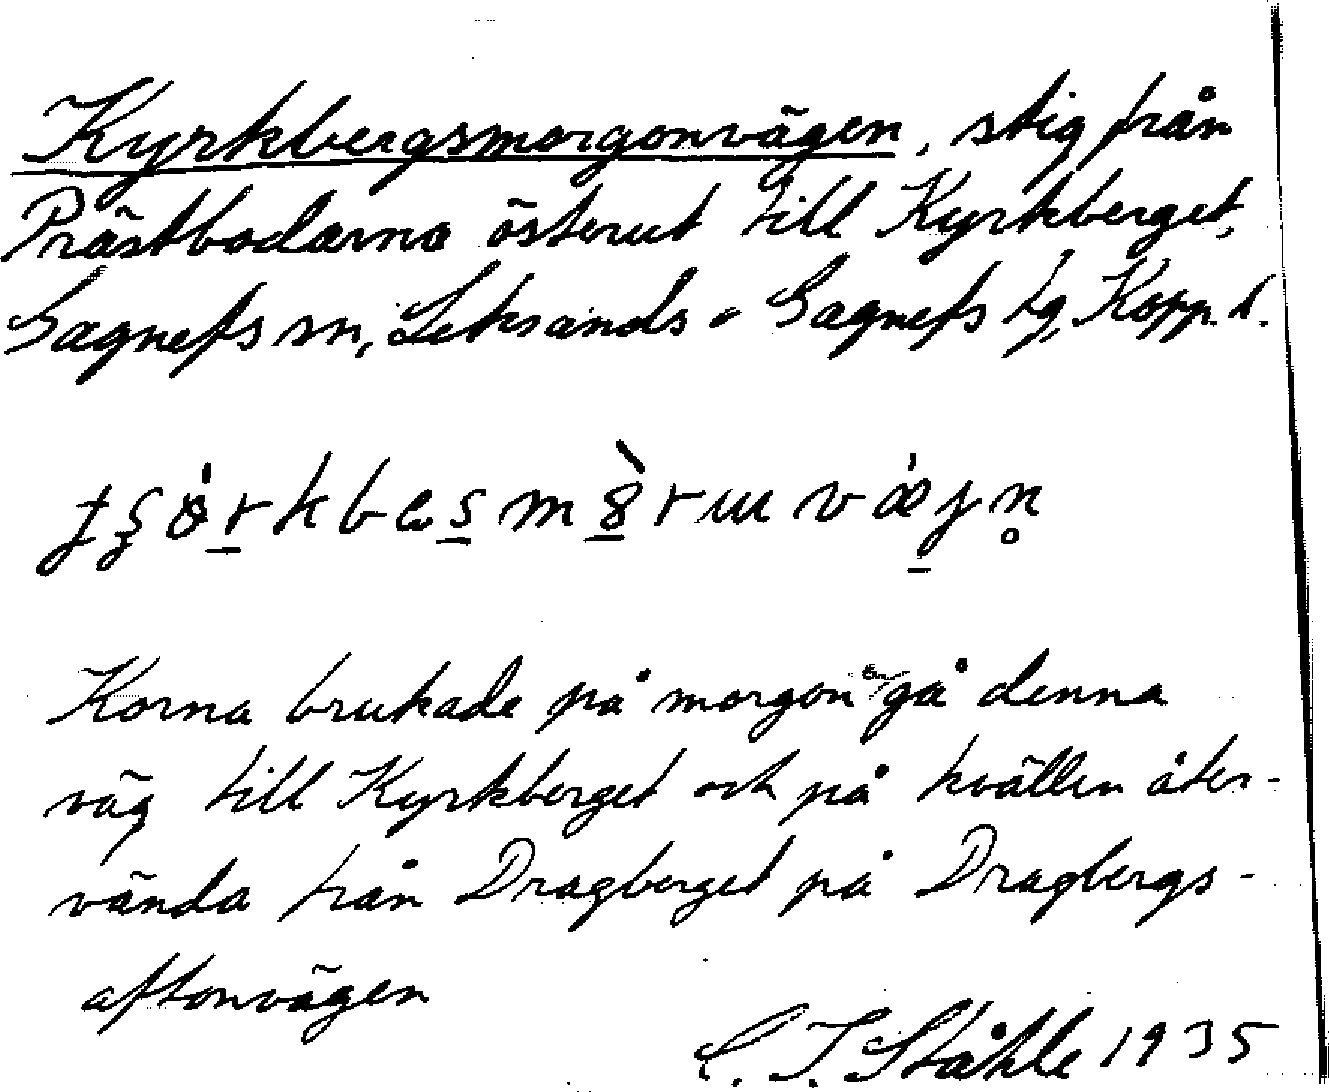 Kyrkbergsmorgonvägen, stig från
Prästbodarna österut till Kyrkberget,
Gagnefs sn, Leksands o Gagnefs tg, Kopp. l.
Korna brukade på morgonen gå denna
väg till Kyrkberget och på kvällen åter-
vända från Dragberget på Dragbergs-
aftonvägen
C. I. Ståhle 1935